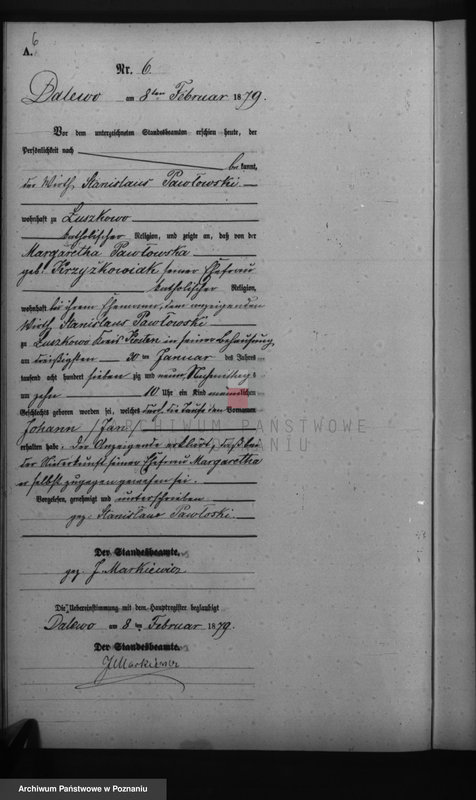 6
A.
Nr. 6.
Dalewo am 8ten Februar 1879.
Vor dem unterzeichneten Standesbeamten erschien heute, der
Persönlichkeit nach
bekannt,
der Wirth Stanislaus Pawłowski
wohnhaft zu Luszkowo
katholischer Religion, und zeigte an, daß von der
Margaretha Pawłowska
geb. Krzyżkowiak seiner Ehefrau
katholischer Religion,
wohnhaft bei ihrem Ehemanne, dem anzeigenden
Wirth Stanislaus Pawłowski
zu Luszkowo Kreis Kosten in seiner Behausung,
am dreißigsten 30ten Januar des Jahres
tausend acht hundert sieben zig und neun, Nachmittags
um zehn 10 Uhr ein Kind männlichen
Geschlechts geboren worden sei, welches durch die Taufe den Vornamen
Johann /Jan/
erhalten habe. Der Anzeigende erklärt, daß bei
der Niederkunft seiner Ehefrau Margaretha
er selbst zugegen gewesen sei.
Vorgelesen, genehmigt und unterschrieben
gez. Stanislaus Pawłoski.
Der Standesbeamte.
gez. J. Markiewicz
Die Uebereinstimmung mit dem Hauptregister beglaubigt
Dalewo am 8ten Februar 1879.
Der Standesbeamte.
J Markiewicz
ARCHIWUM PAŃSTWOWE
W POZNANIU
Archiwum Państwowe w Poznaniu